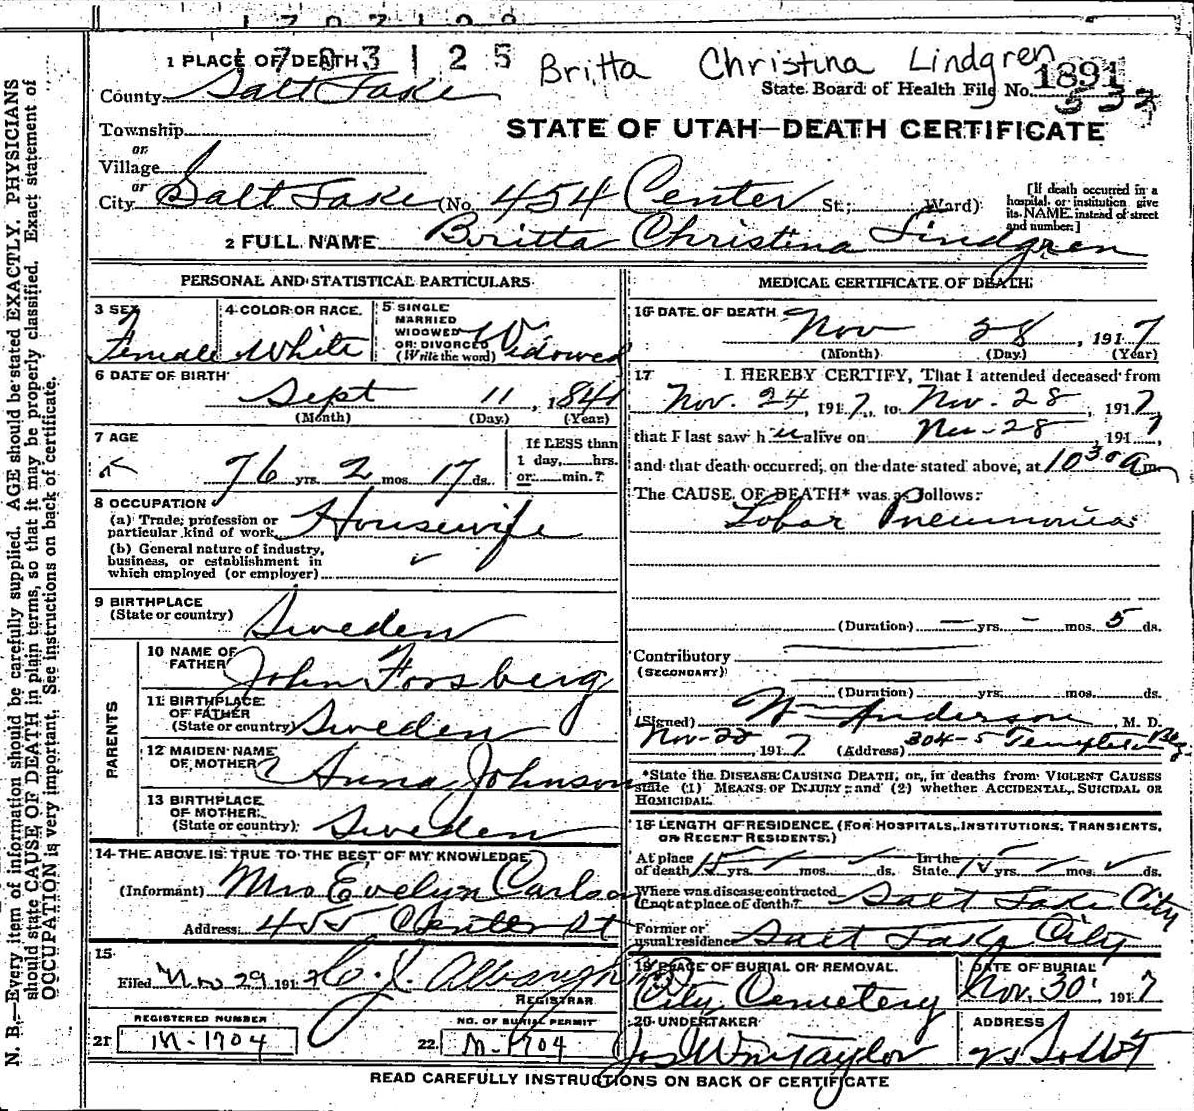 1703125 Britta Christina Lindgren
1 PLACE OF DEATH
State Board of Health File No. 1891
County Salt Lake
STATE OF UTAH—DEATH CERTIFICATE
Township
or
Village
or
City Salt Lake (No. 454 Center St.; Ward)
[If death occurred in a hospital or institution give its NAME instead of street and number.]
2 FULL NAME Britta Christina Lindgren
PERSONAL AND STATISTICAL PARTICULARS
3 SEX Female
4 COLOR OR RACE. White
5 SINGLE MARRIED WIDOWED OR DIVORCED (Write the word) Widowed
6 DATE OF BIRTH Sept 11, 1841
(Month) (Day) (Year)
7 AGE
76 yrs. 2 mos. 17 ds.
If LESS than 1 day, hrs. or min.?
8 OCCUPATION
(a) Trade, profession or particular kind of work Housewife
(b) General nature of industry, business, or establishment in which employed (or employer)
9 BIRTHPLACE
(State or country) Sweden
PARENTS
10 NAME OF FATHER John Forsberg
11 BIRTHPLACE OF FATHER
(State or country) Sweden
12 MAIDEN NAME OF MOTHER Anna Johnson
13 BIRTHPLACE OF MOTHER
(State or country) Sweden
14 THE ABOVE IS TRUE TO THE BEST OF MY KNOWLEDGE
(Informant) Mrs Evelyn Carlson
Address 455 Center St
15
Filed Nov 29 1917 C. J. Albaugh
REGISTRAR
REGISTERED NUMBER
21 M-1704
NO. OF BURIAL PERMIT
22 M-1704
MEDICAL CERTIFICATE OF DEATH
16 DATE OF DEATH Nov 28, 1917
(Month) (Day) (Year)
17 I HEREBY CERTIFY, That I attended deceased from
Nov. 24, 1917, to Nov. 28, 1917
that I last saw her alive on Nov. 28, 1917,
and that death occurred, on the date stated above, at 10 30 a m
The CAUSE OF DEATH* was as follows:
Lobar Pneumonia
(Duration) — yrs. — mos. 5 ds.
Contributory
(SECONDARY)
(Duration) yrs. mos. ds.
(Signed) Wm Anderson, M. D.
Nov-28 1917 (Address) 304-5 Templeton Bldg
*State the DISEASE CAUSING DEATH, or, in deaths from VIOLENT CAUSES
state (1) MEANS OF INJURY; and (2) whether ACCIDENTAL, SUICIDAL OR
HOMICIDAL.
18 LENGTH OF RESIDENCE (FOR HOSPITALS, INSTITUTIONS, TRANSIENTS, OR RECENT RESIDENTS.)
At place of death 15 yrs. mos. ds. In the State 15 yrs. mos. ds.
Where was disease contracted
if not at place of death? Salt Lake City
Former or
usual residence Salt Lake City
19 PLACE OF BURIAL OR REMOVAL. City Cemetery
DATE OF BURIAL Nov. 30 1917
20 UNDERTAKER Jos Wm Taylor
ADDRESS
READ CAREFULLY INSTRUCTIONS ON BACK OF CERTIFICATE
N. B.—Every item of information should be carefully supplied. AGE should be stated EXACTLY. PHYSICIANS
should state CAUSE OF DEATH in plain terms, so that it may be properly classified. Exact statement of
OCCUPATION is very important. See instructions on back of certificate.